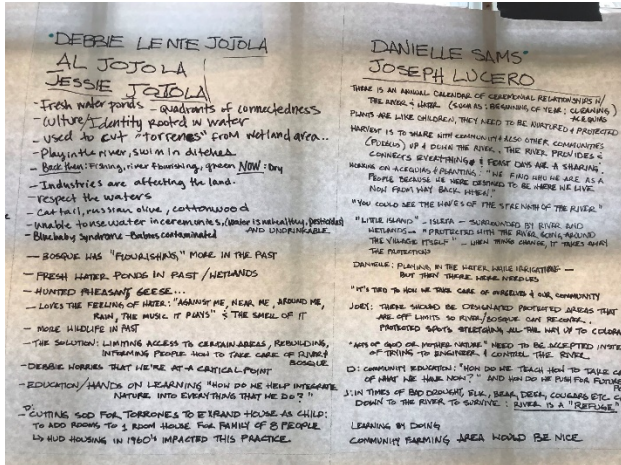 DEBBIE LENTE JOJOLA
AL JOJOLA
JESSIE JOJOLA
- Fresh water ponds - Quadrants of connectedness
- Culture/Identity Rooted in water
- used to cut "torrenes" from wetland area...
- Play in the river, swim in ditches
- Back then: Fishing, river flourishing, green NOW: Dry
- Industries are affecting the land.
- respect the waters
- Cat tail, russian olive, cottonwood
- Unable to use water in ceremonies, (water is unhealthy, pesticides)
AND UNDRINKABLE
- Blue baby Syndrome - Babies contaminated
- BOSQUE WAS "FLOURISHING" MORE IN THE PAST
- FRESH WATER PONDS IN PAST / WETLANDS
- HUNTED PHEASANT GEESE...
- LOVES THE FEELING OF WATER: "AGAINST ME, NEAR ME, AROUND ME,
RAIN, THE MUSIC IT PLAYS" & THE SMELL OF IT
- MORE WILDLIFE IN PAST
- THE SOLUTION: LIMITING ACCESS TO CERTAIN AREAS, REBUILDING,
INFORMING PEOPLE HOW TO TAKE CARE OF RIVER &
BOSQUE
- DEBBIE WORRIES THAT WE'RE AT A CRITICAL POINT
- EDUCATION/HANDS ON LEARNING "HOW DO WE HELP INTEGRATE
NATURE INTO EVERYTHING THAT WE DO?"
- CUTTING SOD FOR TORRONES TO EXPAND HOUSE AS CHILD:
TO ADD ROOMS TO 1 ROOM HOUSE FOR FAMILY OF 8 PEOPLE
↳ HUD HOUSING IN 1960'S IMPACTED THIS PRACTICE.
DANIELLE SAMS
JOSEPH LUCERO
THERE IS AN ANNUAL CALENDAR OF CEREMONIAL RELATIONSHIPS W/
THE RIVER & WATER (SUCH AS: BEGINNING OF YEAR: CLEANING)
ACEQUIAS
PLANTS ARE LIKE CHILDREN, THEY NEED TO BE NURTURED & PROTECTED
HARVEST IS TO SHARE WITH COMMUNITY & ALSO OTHER COMMUNITIES
(PUEBLOS) UP & DOWN THE RIVER. THE RIVER PROVIDES &
CONNECTS EVERYTHING & FEAST DAYS ARE A SHARING.
WORKING ON ACEQUIAS & PLANTING: "WE FIND WHO WE ARE AS A
PEOPLE BECAUSE WE WERE DESTINED TO BE WHERE WE LIVE
NOW FROM WAY BACK WHEN."
"YOU COULD SEE THE WAVES OF THE STRENGTH OF THE RIVER"
"LITTLE ISLAND" - ISLETA - SURROUNDED BY RIVER AND
WETLANDS - "PROTECTED WITH THE RIVER GOING AROUND
THE VILLAGE ITSELF" - WHEN THINGS CHANGE, IT TAKES AWAY
THE PROTECTION
DANIELLE: PLAYING IN THE WATER WHILE IRRIGATING -
BUT THEN THERE WERE NEEDLES
"IT'S TIED TO HOW WE TAKE CARE OF OURSELVES & OUR COMMUNITY
JOEY: THERE SHOULD BE DESIGNATED PROTECTED AREAS THAT
ARE OFF LIMITS SO RIVER/BOSQUE CAN RECOVER.
PROTECTED SPOTS STRETCHING ALL THE WAY UP TO COLORA
"ACTS OF GOD OR MOTHER NATURE" NEED TO BE ACCEPTED INSTE
OF TRYING TO ENGINEER & CONTROL THE RIVER
D: COMMUNITY EDUCATION: "HOW DO WE TEACH HOW TO TAKE CA
OF WHAT WE HAVE NOW?" AND HOW DO WE PUSH FOR FUTURE
J: IN TIMES OF BAD DROUGHT, ELK, BEAR, DEER, COUGARS ETC C
DOWN TO THE RIVER TO SURVIVE: RIVER IS A "REFUGE"
LEARNING BY DOING
COMMUNITY FARMING AREA WOULD BE NICE